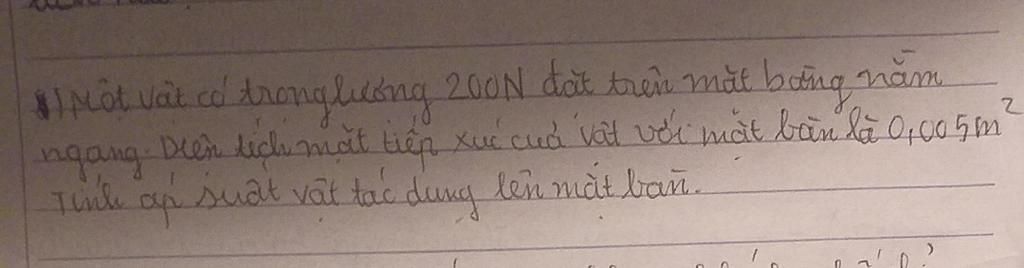 1) Một vật có trọng lượng 200N đặt trên mặt bàng nằm
ngang. Diện tích mặt tiếp xúc của vật với mặt bàn là 0,005m²
Tính áp suất vật tác dụng lên mặt bàn.